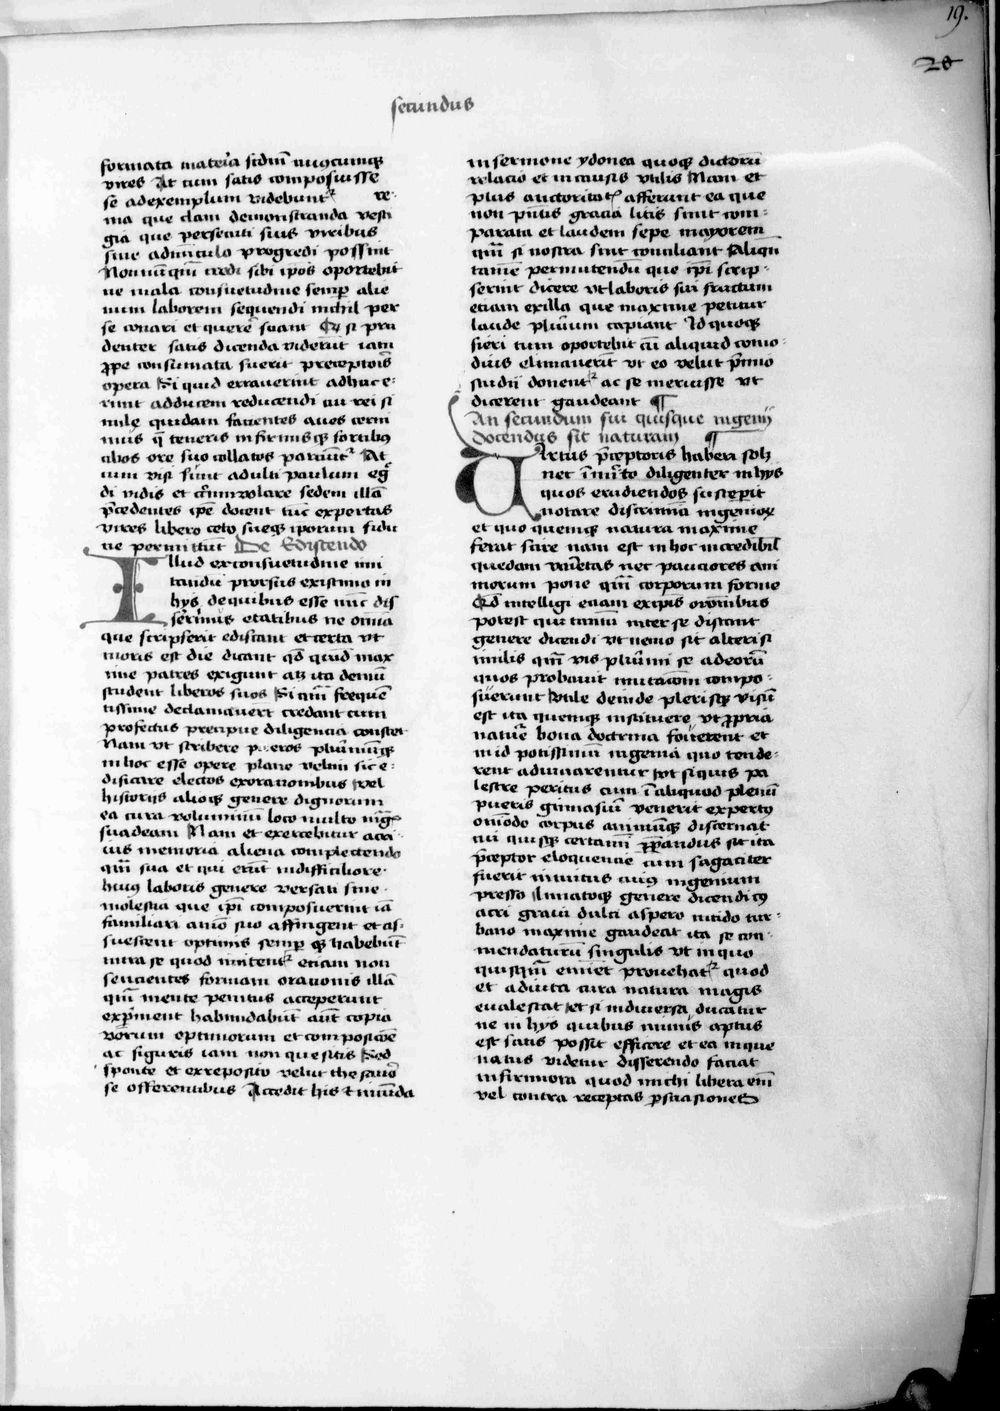 19.
28
secundus
formata materia sūdm̄ uniꝰcuiusqꝫ
vires At cum satis composuisse
se ad exemplum videbunt᷑ re-
ma que clam demonstranda vesti
gia que persecuti suis viribus
sine admīculo progredi possint
Nonnūqm̄ credi sibi ip̄os oportebit
ne mala consuetudine semꝑ alie
num laborem sequendi nichil per
se conari et querer̄ sciant Qꝫ si pru
denter satis dicenda viderīt iam
ꝓpe consumata fuerit preceptoīs
opera Si quid erraverint adhuc e-
runt ad ducem reducendi cui rei si
mile quidam facientes aves cerni
mus q̄ teneris infirmisqꝫ fortibꝰ
cibos ore suo collatos parciūt᷑ At
cum visi sūnt adulti paulum eg̃
di nidis et circumvolare sedem illā
p̄cedentes ip̄e docent tūc expertas
vires libero celo sueqꝫ ip̄orum fidu
cie permittūt De Ediscendo
Illud ex consuetudine mu
tandū prorsus existimo in
hys de quibus esse nūc dis
serimus etatibus ne omīa
que scripserīt ediscant et certa vt
moris est die dicant qđ quidē max
ime patres exigunt atqꝫ ita demū
student liberos suos Si qm̄ frequē
tissime declamaverīt credant cum
profectus precipue diligencia constet
Nam vt scribere pueros plurimūqꝫ
in hoc esse opere plane velim sic e-
disicare electos ex oracionibus vel
historijs alioqꝫ genere dignorum
ea cura voluminū loco multo mag̃
suadeam Nam et exercebitur acri
us memoria aliena complectendo
qm̄ sua et qui erūt in difficiliore
huiꝰ laboris genere versati sine
molestia que ip̄i composuerint iā
familiari aīō suo affingent et as-
suescent optimis semꝑ qꝫ habebūt
intra se quod imitent᷑ etiam non
sencientes formam oracionis illā
qm̄ mente penitus acceperunt
exp̄ment habundabūt aūt copia
verum optimorum et composicōe
ac figuris iam non quesitis Sed
sponte et ex reposito velut thesauro
se offerentibus Accedit his ⁊ iucūda
in sermone ydonea quoqꝫ dictorū
relacio et in causis vtilis Nam et
plus auctoritat̄ afferunt ea que
non p̄ntis gracia litis sunt com-
parata et laudem sepe mayorem
qm̄ si nostra sint conciliant Aliqn̄
tamē permittendū que ip̄i scrip-
serint dicere vt laboris sui fructum
etiam ex illa que maxime petitur
laude pluriū capiant Id quoqꝫ
fieri tum oportebit cū aliquid como-
dius elimaverīt vt eo velut p̄mio
studii donent᷑ ac se meruisse vt
dicerent gaudeant ¶
An secundum sui quisque ingenij
docendus sit naturam ¶
Virtus p̄ceptoris haberi solꝫ
nec īmīto diligenter in hys
quos erudiendos susceperit
notare discrimīa ingenioꝝ
et quo quemqꝫ natura maxime
ferat scire nam est in hoc incredibil̄
quedam varietas nec pauciores ani
morum pene qm̄ corporum forme
Qđ intelligi etiam ex ip̄is oratoribus
potest qui tantū inter se distant
genere dicendi vt nemo sit alteri si
milis qm̄vis plurimi se ad eorū
quos probavit imitacōm compo-
suerunt Vtile deinde plerisqꝫ visū
est ita quemqꝫ instituere vt ꝓpria
nature bona doctrina foverent et
in id potissimū ingenia quo tende-
rent adiuvarentur vt si quis pa
lestre peritus cum ī aliquod plenū
pueris gimnasiū venerit expertꝰ
om̄odo corpus animūqꝫ discernat
cui quisqꝫ certamī ꝓparandus sit ita
p̄ceptor eloquencie cum sagaciter
fuerit intuitus cuiꝰ ingenium
presso limatoqꝫ genere dicendi qꝫ
acri gravi dulci aspero nitido tur-
bano maxime gaudeat ita se com-
mendaturū singulis vt in quo
quisqm̄ eminet provehat᷑ quod
et adiuta cura natura magis
evalescat et si in diversa ducatur
ne in hys quibus minus aptus
est satis possit efficere et ea in que
natus videtur disserendo faciat
infirmiora quod michi libera em̄
vel contra receptas ꝑsuasiones